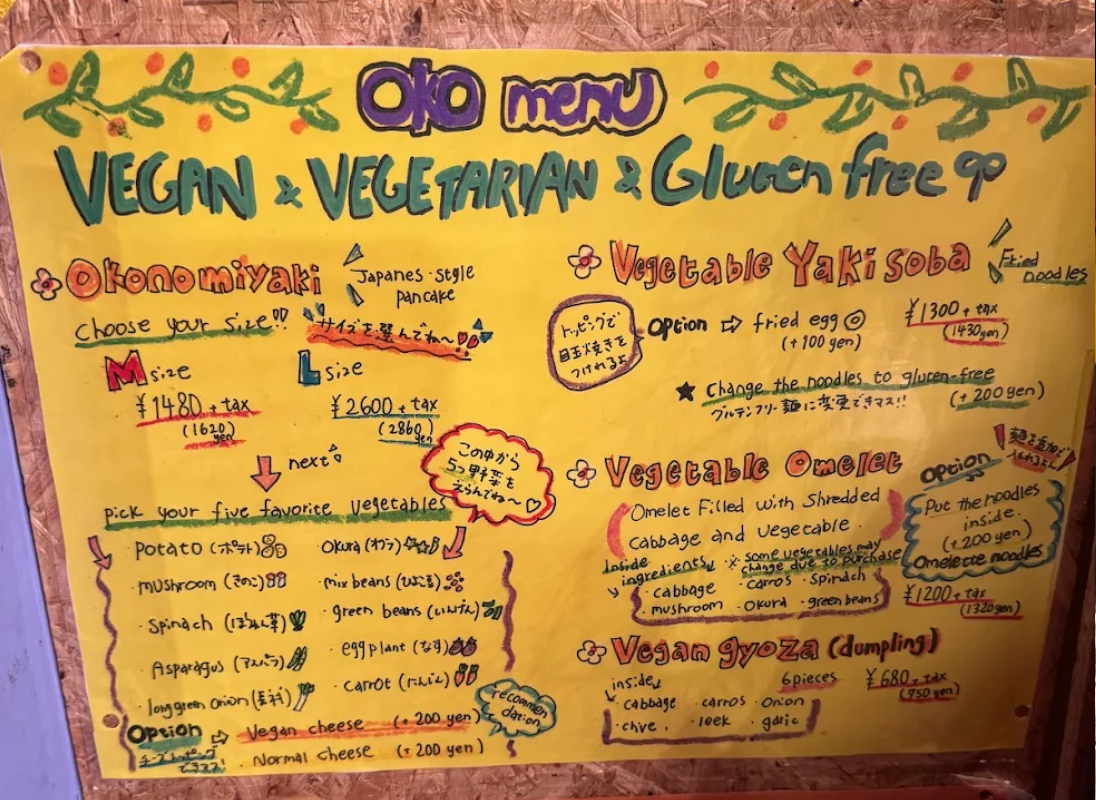 OKO menu
VEGAN & VEGETARIAN & Gluten free
Okonomiyaki
Japanes style
pancake
choose your size!!
サイズを選んでね〜
M size
L size
¥1480 + tax
(1620
yen)
¥2600 + tax
(2860
yen)
next
この中から
5つ野菜を
えらんでね〜♡
pick your five favorite vegetables
・Potato (ポテト)
・Okura (オクラ)
・mushroom (きのこ)
・mix beans (ひよこ豆)
・spinach (ほうれん草)
・green beans (いんげん)
・Asparagus (アスパラ)
・eggplant (なす)
・long green onion (長ネギ)
・carrot (にんじん)
Option ⇨ Vegan cheese (+200 yen)
チーズトッピング
できマス!
・Normal cheese (+200 yen)
recommen
dation
Vegetable Yaki soba
Fried
noodles
トッピングで
目玉焼きを
つけれるよ
Option ⇨ fried egg
(+100 yen)
¥1300 + tax
(1430yen)
★ Change the noodles to gluten-free
グルテンフリー麺に変更できマス!!
(+200yen)
Vegetable Omelet
Omelet Filled with Shredded
cabbage and vegetable.
Inside
ingredients
※ some vegetables may
change due to purchase
・cabbage ・carros ・spinach
・mushroom ・Okura ・green beans
Option
麺を追加で
入れれるよ!
Put the noodles
inside.
(+200yen)
Omelette noodles
¥1200 + tax
(1320yen)
Vegan gyoza (dumpling)
inside
6pieces
¥680 + tax
(750yen)
・cabbage ・carros ・Onion
・chve. ・leek ・garlic